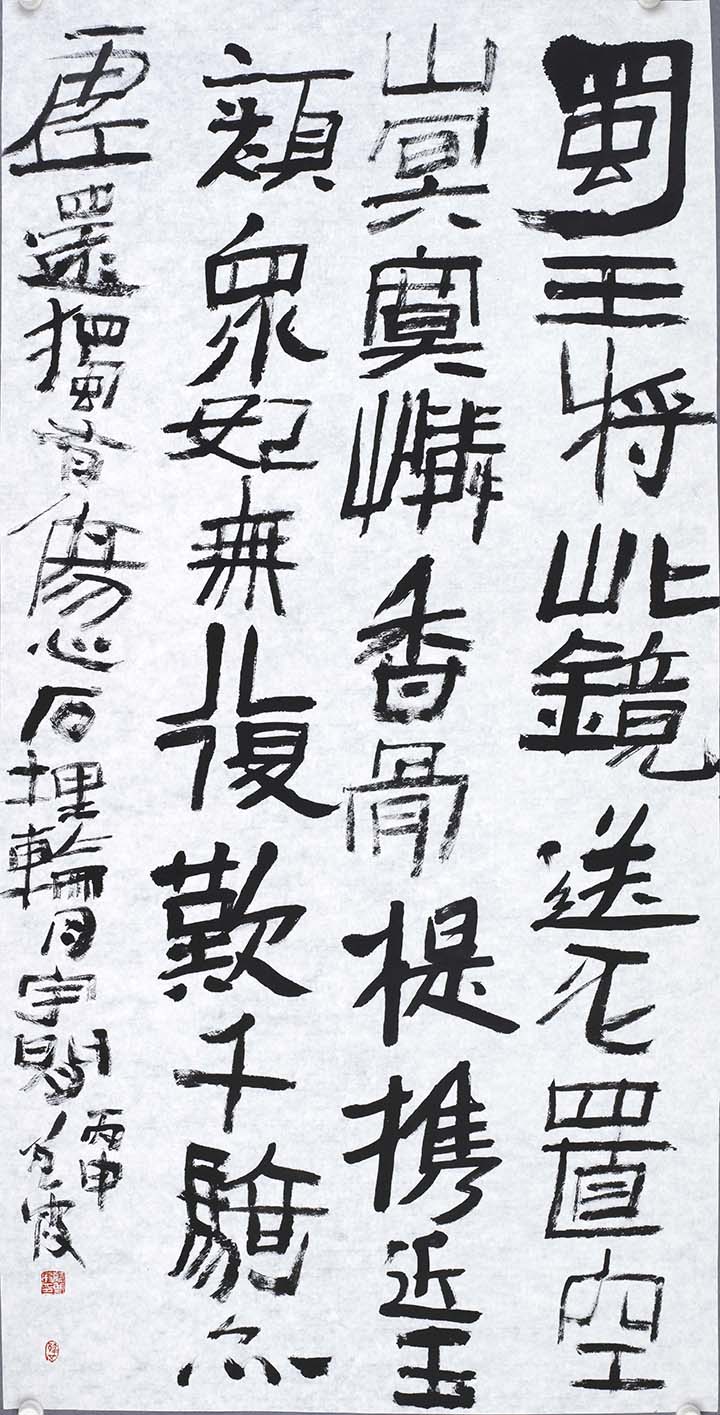 蜀王將此鏡送死置空
山冥寞憐香骨提携近玉
顏眾妃無復歎千騎亦
虛還獨有傷心石埋輪月宇間
丙申